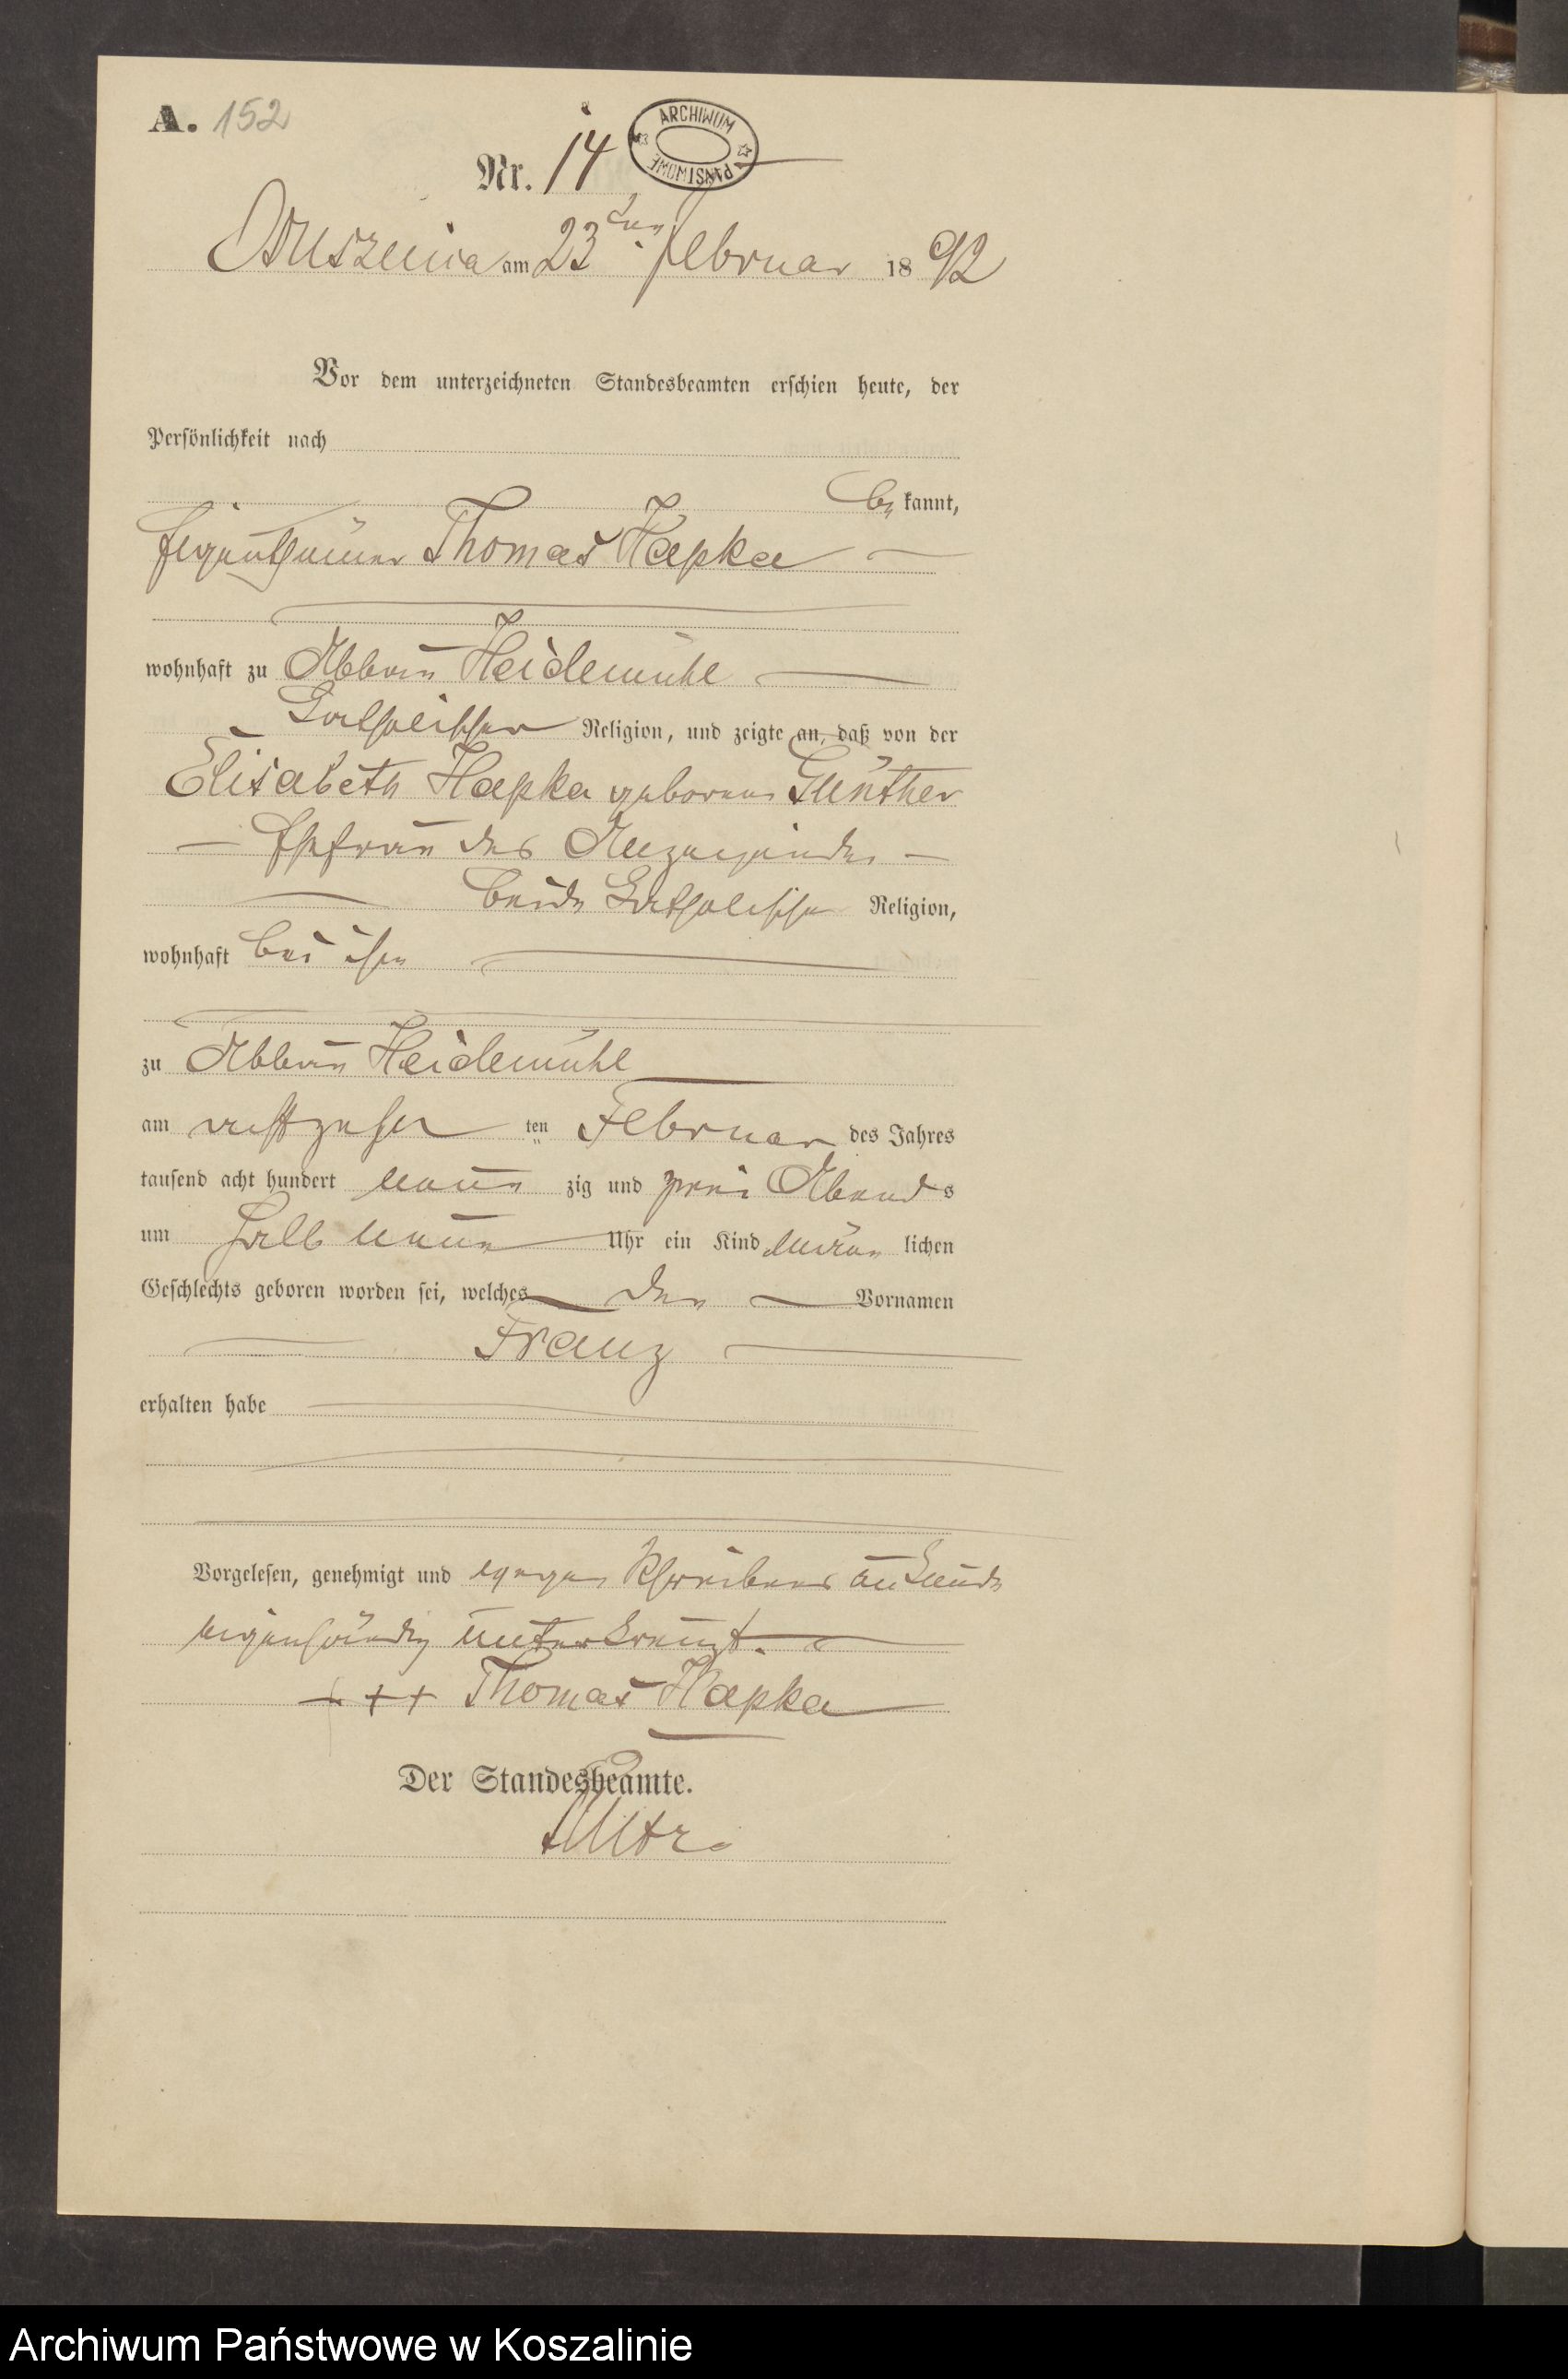 A. 152
Nr. 14
ARCHIWUM PAŃSTWOWE
am 23ten Februar 1892
Vor dem unterzeichneten Standesbeamten erschien heute, der
Persönlichkeit nach
be kannt,
Eigenthümer Thomas Hapka
wohnhaft zu Abbau Heidemühl
katholischer Religion, und zeigte an, daß von der
Elisabeth Hapka geborene Günther
Ehefrau des Anzeigenden
beide katholischer Religion,
wohnhaft bei ihm
zu Abbau Heidemühl
am achtzehn ten Februar des Jahres
tausend acht hundert neun zig und zwei Abends
um halb neun Uhr ein Kind männ lichen
Geschlechts geboren worden sei, welches den Vornamen
Franz
erhalten habe
Vorgelesen, genehmigt und wegen Schreibens unkunde
eigenhändig unterkreuzt.
+++ Thomas Hapka
Der Standesbeamte.
Archiwum Państwowe w Koszalinie